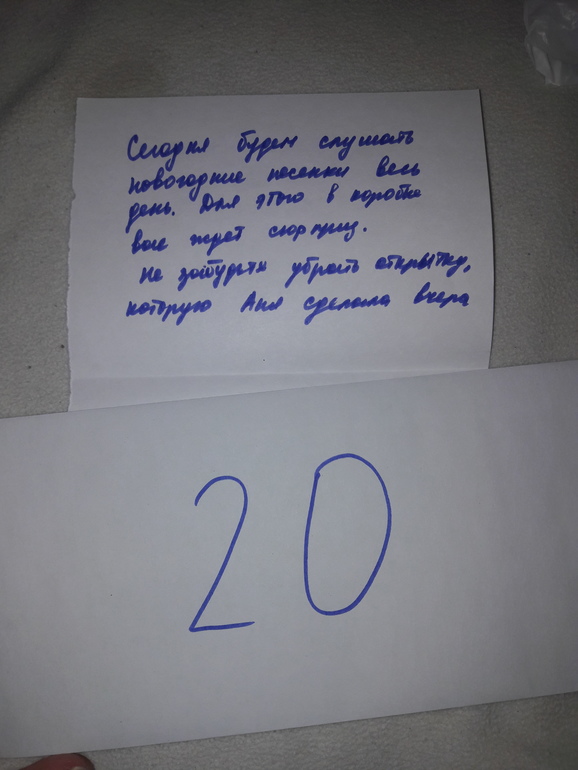 Сегодня будем слушать
новогодние песенки весь
день. Для этого в коробке
вас ждет сюрприз.
Не забудьте убрать открытку,
которую Аня сделала вчера
20